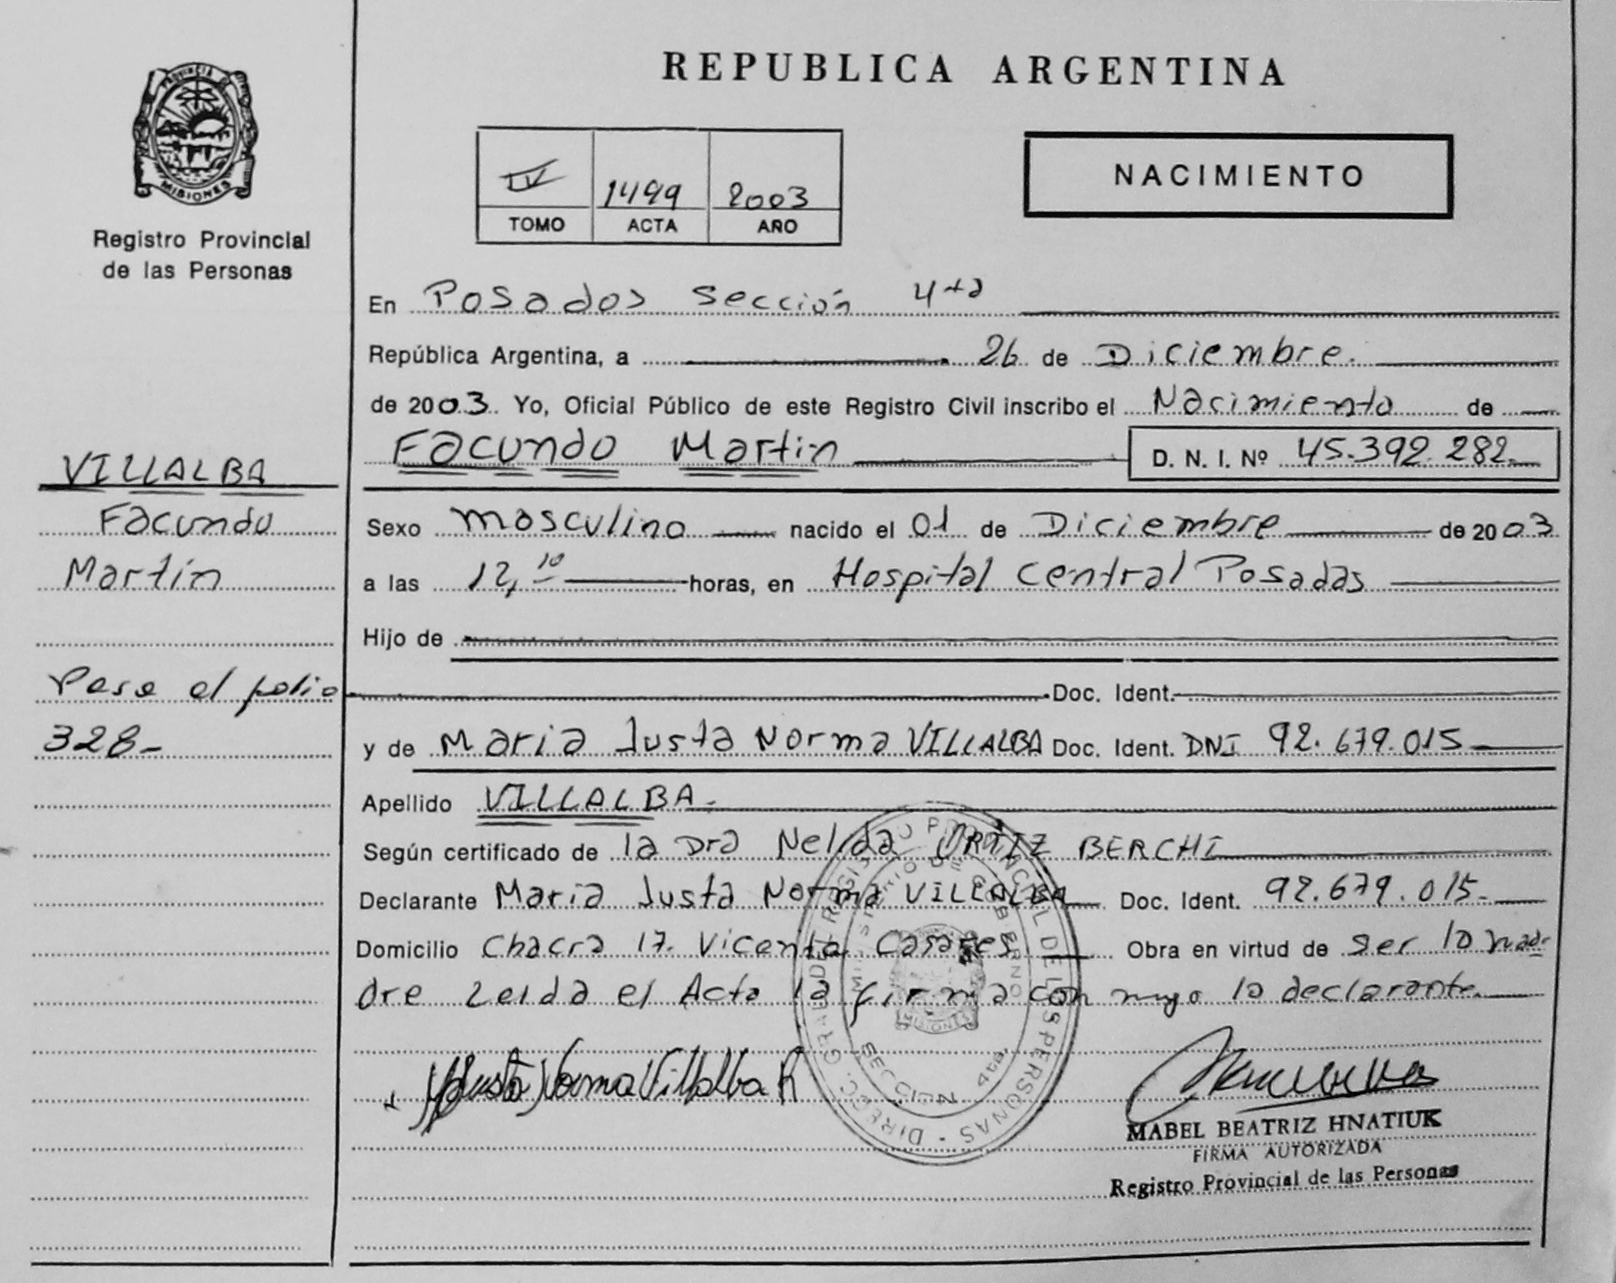 REPUBLICA ARGENTINA
PROVINCIA DE
MISIONES
Registro Provincial
de las Personas
IV 1499 2003
TOMO ACTA AÑO
NACIMIENTO
En Posadas Sección 4ta
República Argentina, a 26 de Diciembre.
de 2003. Yo, Oficial Público de este Registro Civil inscribo el Nacimiento de
Facundo Martin D. N. I. Nº 45.392.282
Sexo masculino nacido el 01 de Diciembre de 2003
a las 12,10 horas, en Hospital Central Posadas
Hijo de
Doc. Ident.
y de Maria Justa Norma VILLALBA Doc. Ident. DNI 92.679.015
Apellido VILLALBA.
Según certificado de la Dra Nelida ORTIZ BERCHI
Declarante Maria Justa Norma VILLALBA Doc. Ident. 92.679.015
Domicilio Chacra 17. Vicente Casares Obra en virtud de ser la mad-
dre Leida el Acta la firma con migo la declarante.
VILLALBA
Facundo
Martin
Pase al folio
328
Justa Norma Villalba R
DIRECC. GRAL DE REGISTRO PROVINCIAL DE LAS PERSONAS
MINISTERIO DE GOBIERNO
MISIONES
SECCION 4ta
MABEL BEATRIZ HNATIUK
FIRMA AUTORIZADA
Registro Provincial de las Personas